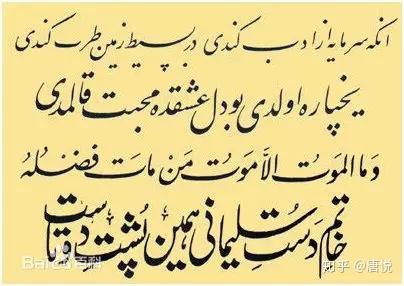 انکه سرمایه از ادب کندی در بسیط زمین طرب کندی
اولدی بو دل عشقده محبت قالمدی
وَمَا الموتُ الاَّ مَوتُ مَنْ مَاتَ فَضْلُهُ
خاتم دَستِ سلیمانی همین پُشتِ دوتاست
百科
知乎 @唐悦